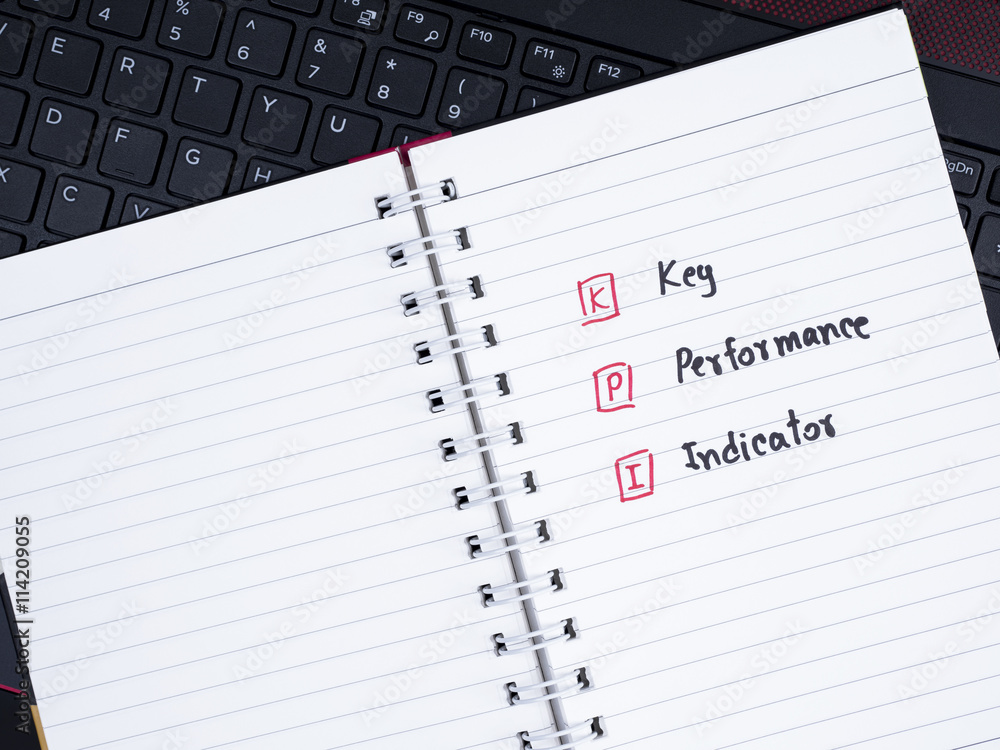 4 % 5 ^ 6 & 7 * 8 ( 9 F8 F9 F10 F11 F12
E R T Y U
D F G H
X C V
PgDn
K Key
P Performance
I Indicator
Adobe Stock | #114209055